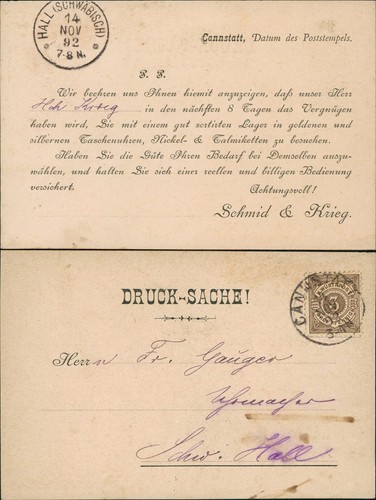 HALL (SCHWÄBISCH)
14
NOV
92
7-8 N.
Cannstatt, Datum des Poststempels.
P. P.
Wir beehren uns Ihnen hiemit anzuzeigen, daß unser Herr
Hch Krieg in den nächsten 8 Tagen das Vergnügen
haben wird, Sie mit einem gut sortirten Lager in goldenen und
silbernen Taschenuhren, Nickel- & Talmiketten zu besuchen.
Haben Sie die Güte Ihren Bedarf bei Demselben auszu-
wählen, und halten Sie sich einer reellen und billigen Bedienung
versichert.
Achtungsvoll!
Schmid & Krieg.
DRUCK-SACHE!
3
Herrn Fr. Gauger
Uhrmacher
Schw. Hall